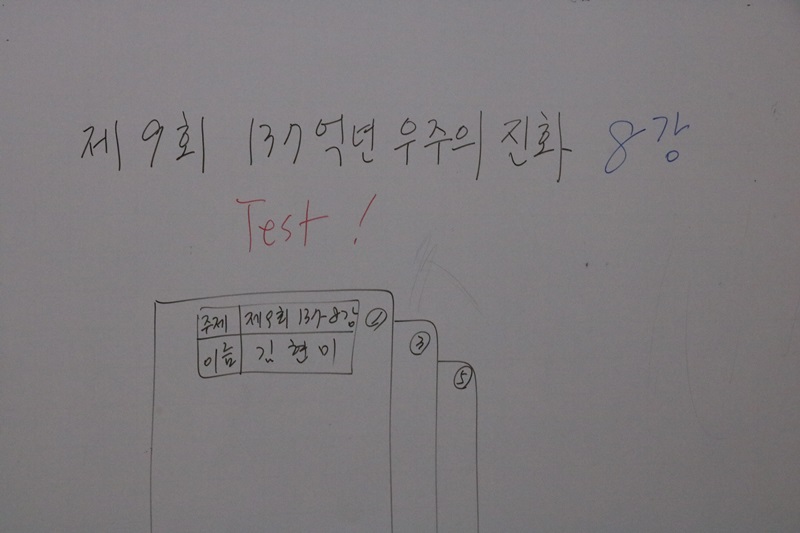 제 9회 137억년 우주의 진화 8강
Test!
주제 제9회 137-8강 ①
이름 김현미
③
⑤